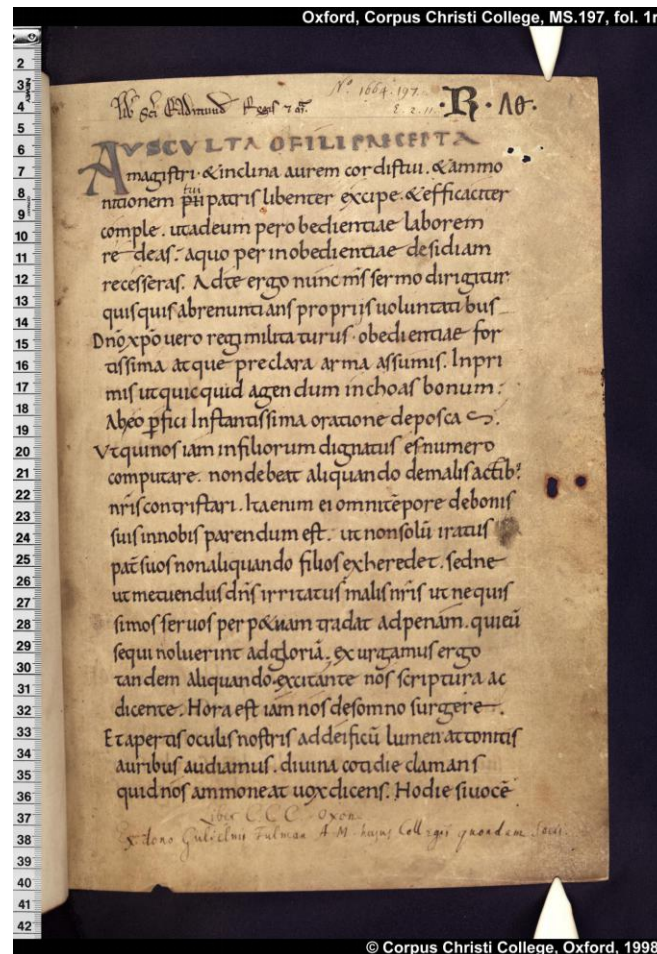 Oxford, Corpus Christi College, MS.197, fol. 1r
Nº 1664. 197.
E. 2. 11.
·R· Λθ·
Lib Sci Eadmundi Regis 7 m̄.
AUSCULTA O FILI PRECEPTA
magistri· & inclina aurem cordis tui· & ammo
nitionem pii patris libenter excipe· & efficaciter
tui
comple. ut ad eum per obedientiae laborem
redeas· a quo per inobedientiae desidiam
recesseras. Ad te ergo nunc m̅s sermo dirigitur
quisquis abrenuntians propriis uoluntatibus
Dn̅o xp̅o uero regi militaturus· obedientiae for
tissima atque preclara arma assumis. In pri
mis ut quicquid agendum inchoas bonum·
Ab eo p̅fici Instantissima oratione deposcas.
Ut qui nos iam in filiorum dignatus es numero
computare. non debeat aliquando de malis actib;
nr̅is contristari. Ita enim ei omni te̅pore de bonis
suis in nobis parendum est. ut non solu̅ iratus
pat̅ suos non aliquando filios exheredet. sed ne
ut metuendus dn̅s irritatus malis nr̅is ut nequis
simos seruos perp&uam tradat ad penam. qui eu̅
sequi noluerint ad gloria̅. exurgamus ergo
tandem aliquando· excitante nos scriptura ac
dicente. Hora est iam nos de somno surgere.
Et apertis oculis nostris ad deificu̅ lumen attonitis
auribus audiamus. diuina cotidie clamans
quid nos ammoneat uox dicens. Hodie si uoce̅
Liber C.C.C. Oxon.
Ex dono Gulielmi Fulman A.M. hujus Collegii quondam Socii.
2
3
4
5
6
7
8
9
10
11
12
13
14
15
16
17
18
19
20
21
22
23
24
25
26
27
28
29
30
31
32
33
34
35
36
37
38
39
40
41
42
© Corpus Christi College, Oxford, 1998